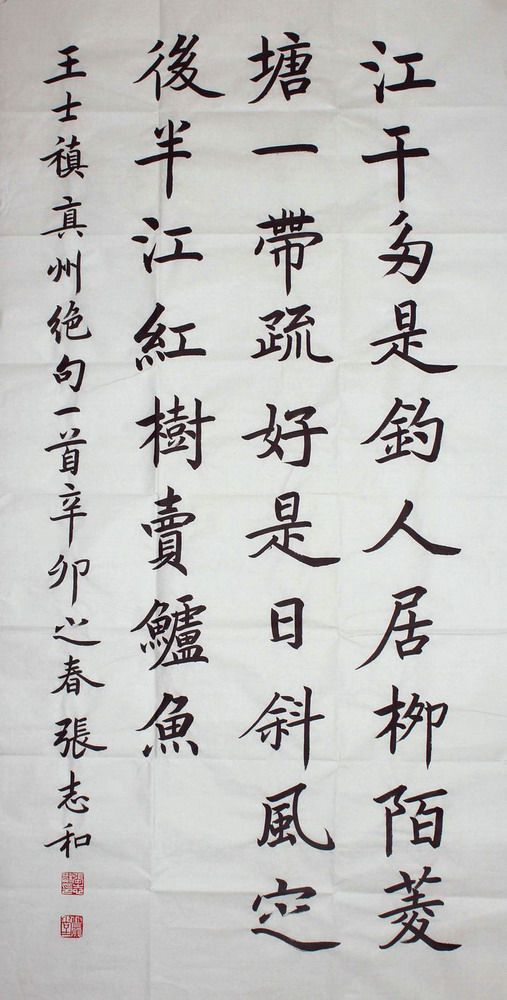 江干多是釣人居柳陌菱
塘一帶疏好是日斜風定
後半江紅樹賣鱸魚
王士禛真州絶句一首辛卯之春張志和